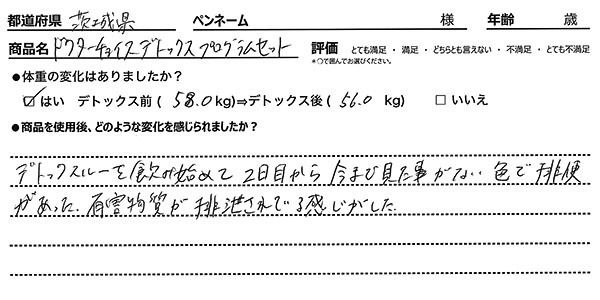 都道府県 茨城県 ペンネーム 様 年齢 歳
商品名 ドクターチョイスデトックスプログラムセット 評価 とても満足 ・ 満足 ・ どちらとも言えない ・ 不満足 ・ とても不満足
*○で囲んでお選びください。
●体重の変化はありましたか？
☑ はい デトックス前 ( 58.0 kg)⇒デトックス後 ( 56.0 kg) □ いいえ
●商品を使用後、どのような変化を感じられましたか？
デトックスルーを飲み始めて 2日目から 今まで見た事がない 色で排便
があった。有害物質が排泄されている感じがした。